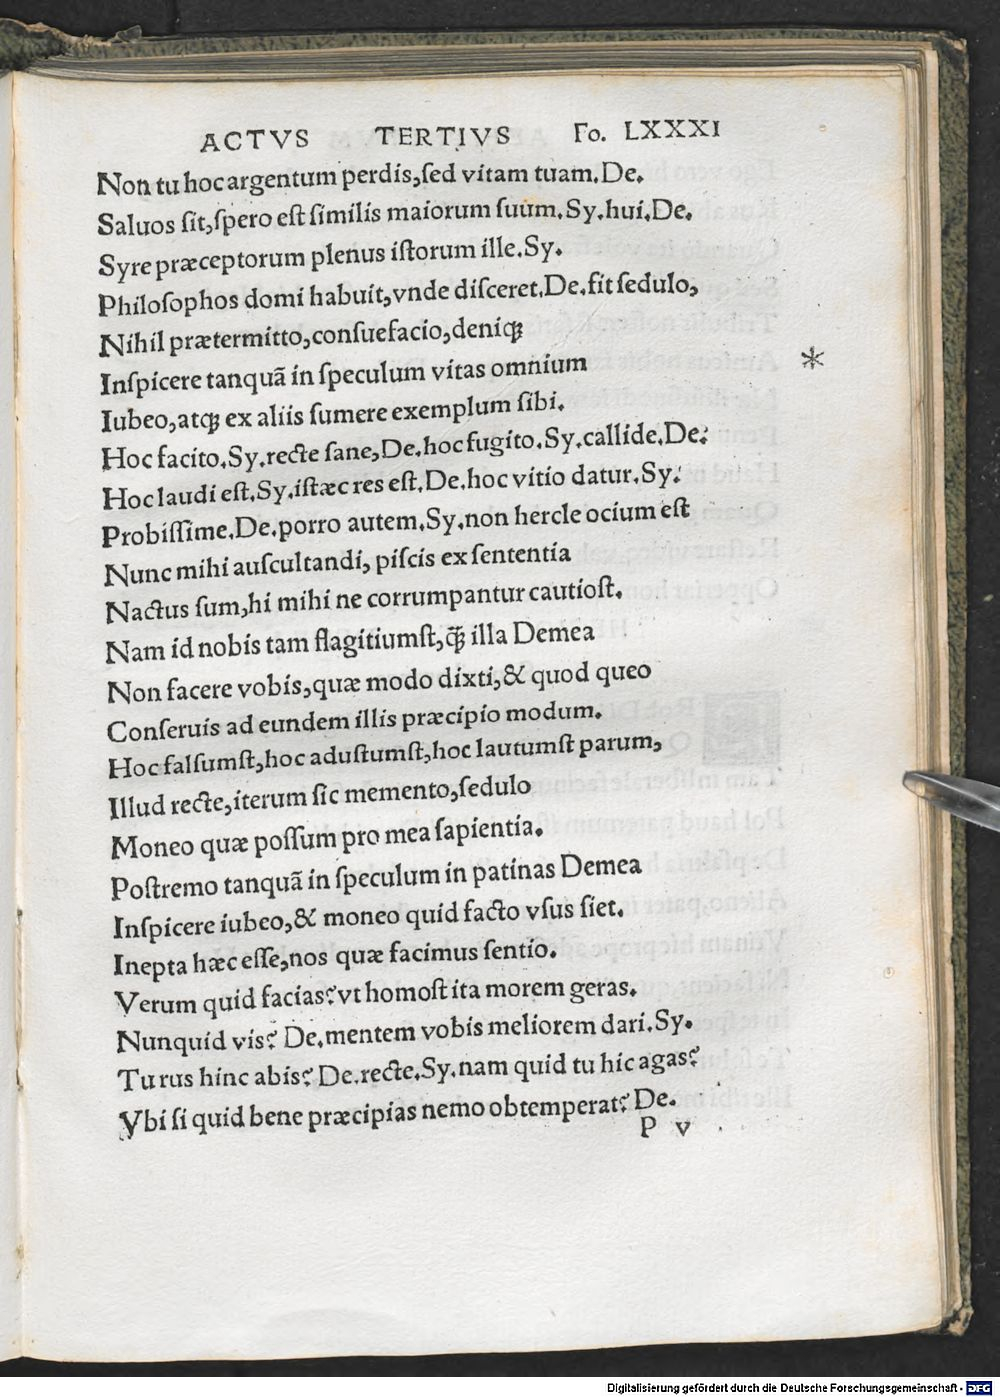 ACTVS TERTIVS Fo. LXXXI
Non tu hoc argentum perdis,ſed vitam tuam.De.
Saluos ſit,ſpero eſt ſimilis maiorum ſuum.Sy.hui.De.
Syre præceptorum plenus iſtorum ille.Sy.
Philoſophos domi habuit,vnde diſceret.De.fit ſedulo,
Nihil prætermitto,conſuefacio,deniqꝫ
Inſpicere tanquã in ſpeculum vitas omnium
*
Iubeo,atqꝫ ex aliis ſumere exemplum ſibi.
Hoc facito.Sy.recte ſane,De.hoc fugito.Sy.callide.De:
Hoc laudi eſt.Sy.iſtæc res eſt.De.hoc vitio datur.Sy:
Probiſſime.De.porro autem.Sy.non hercle ocium eſt
Nunc mihi auſcultandi, piſcis ex ſententia
Nactus ſum,hi mihi ne corrumpantur cautioſt.
Nam id nobis tam flagitiumſt,q̃ꝫ illa Demea
Non facere vobis,quæ modo dixti,& quod queo
Conſeruis ad eundem illis præcipio modum.
Hoc falſumſt,hoc aduſtumſt,hoc lautumſt parum,
Illud recte,iterum ſic memento,ſedulo
Moneo quæ poſſum pro mea ſapientia.
Poſtremo tanquã in ſpeculum in patinas Demea
Inſpicere iubeo,& moneo quid facto vſus ſiet.
Inepta hæc eſſe,nos quæ facimus ſentio.
Verum quid facias?vt homoſt ita morem geras.
Nunquid vis? De.mentem vobis meliorem dari.Sy.
Tu rus hinc abis? De.recte.Sy.nam quid tu hic agas?
Vbi ſi quid bene præcipias nemo obtemperat? De.
P v
Digitalisierung gefördert durch die Deutsche Forschungsgemeinschaft - DFG